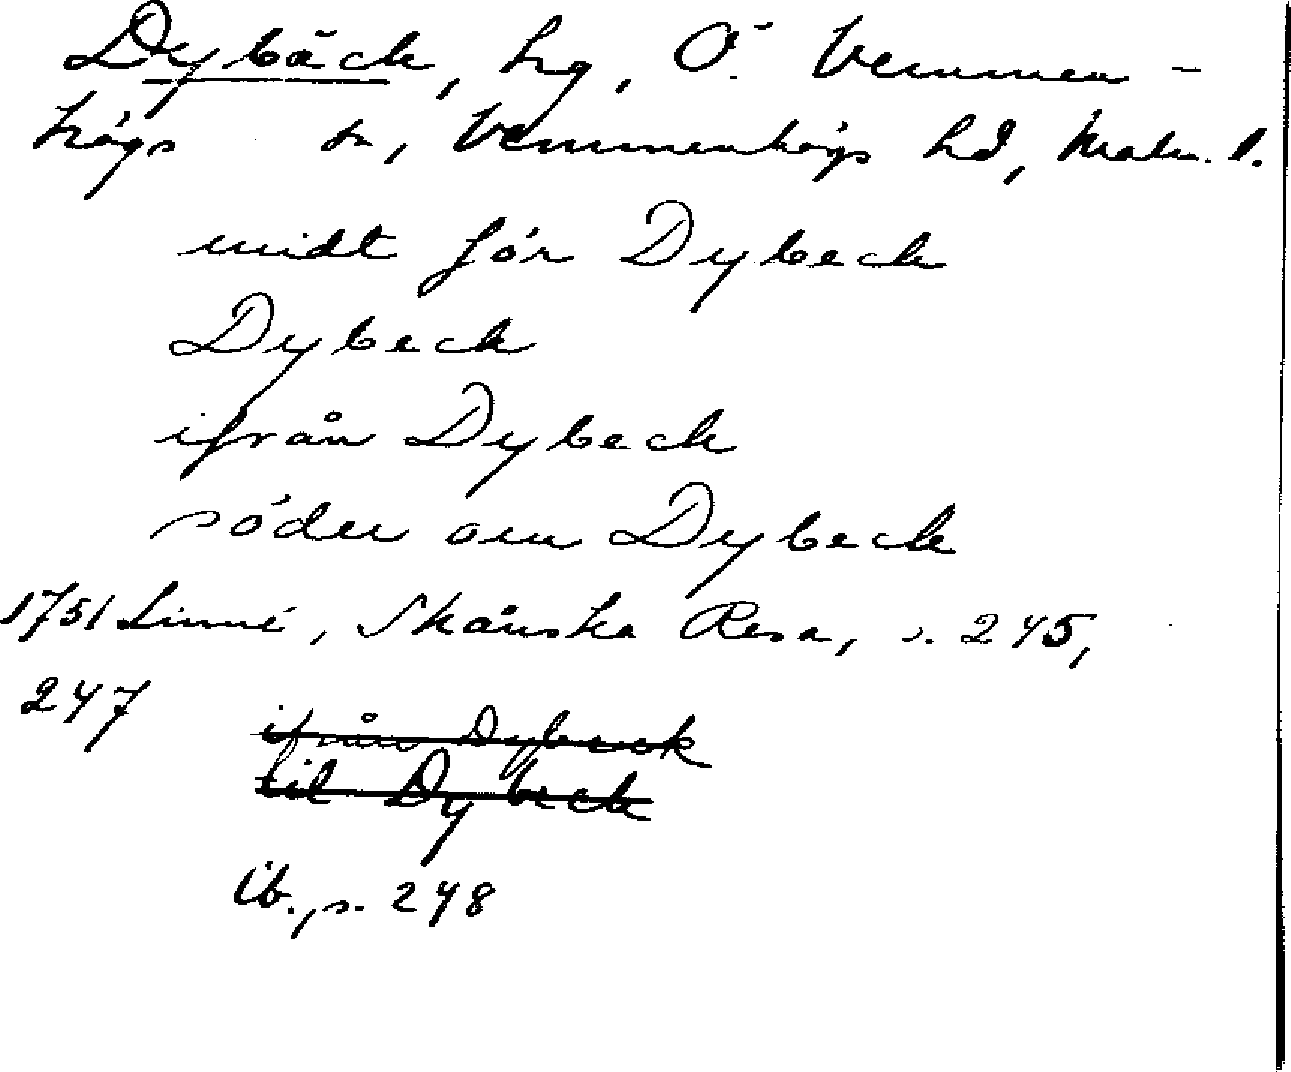 Dybäck, hg, Ö. Vemmen-
högs sn, Vemmenhögs hd, Malm. l.
midt för Dybeck
Dybeck
ifrån Dybeck
söder om Dybeck
1751 Linné, Skånska Resa, s. 245,
247
ifrån Dybeck
til Dybeck
ib., s. 248